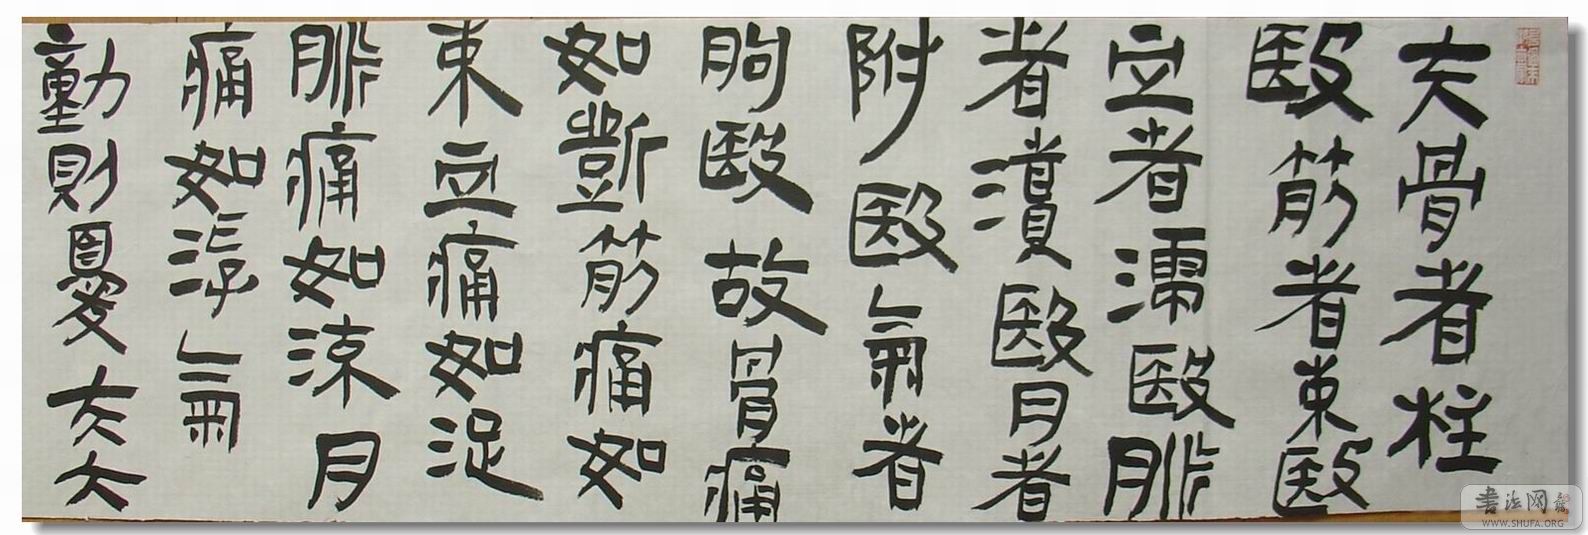 夫骨者柱
殹筋者束殹
血者濡殹脈
者瀆殹肉者
附殹氣者
朐殹故骨痛
如斲筋痛如
束血痛如浞
脈痛如流肉
痛如浮氣
動則憂夫六
書法网
WWW.SHUFA.ORG